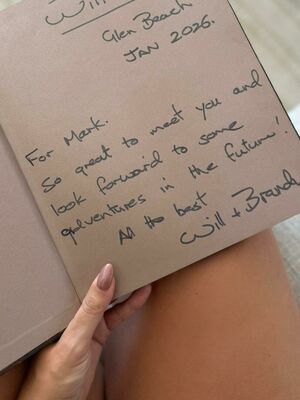 Will
Glen Beach
JAN 2026.
For Mark.
So great to meet you and
look forward to some
adventures in the future!
All the best
Will + Brandi